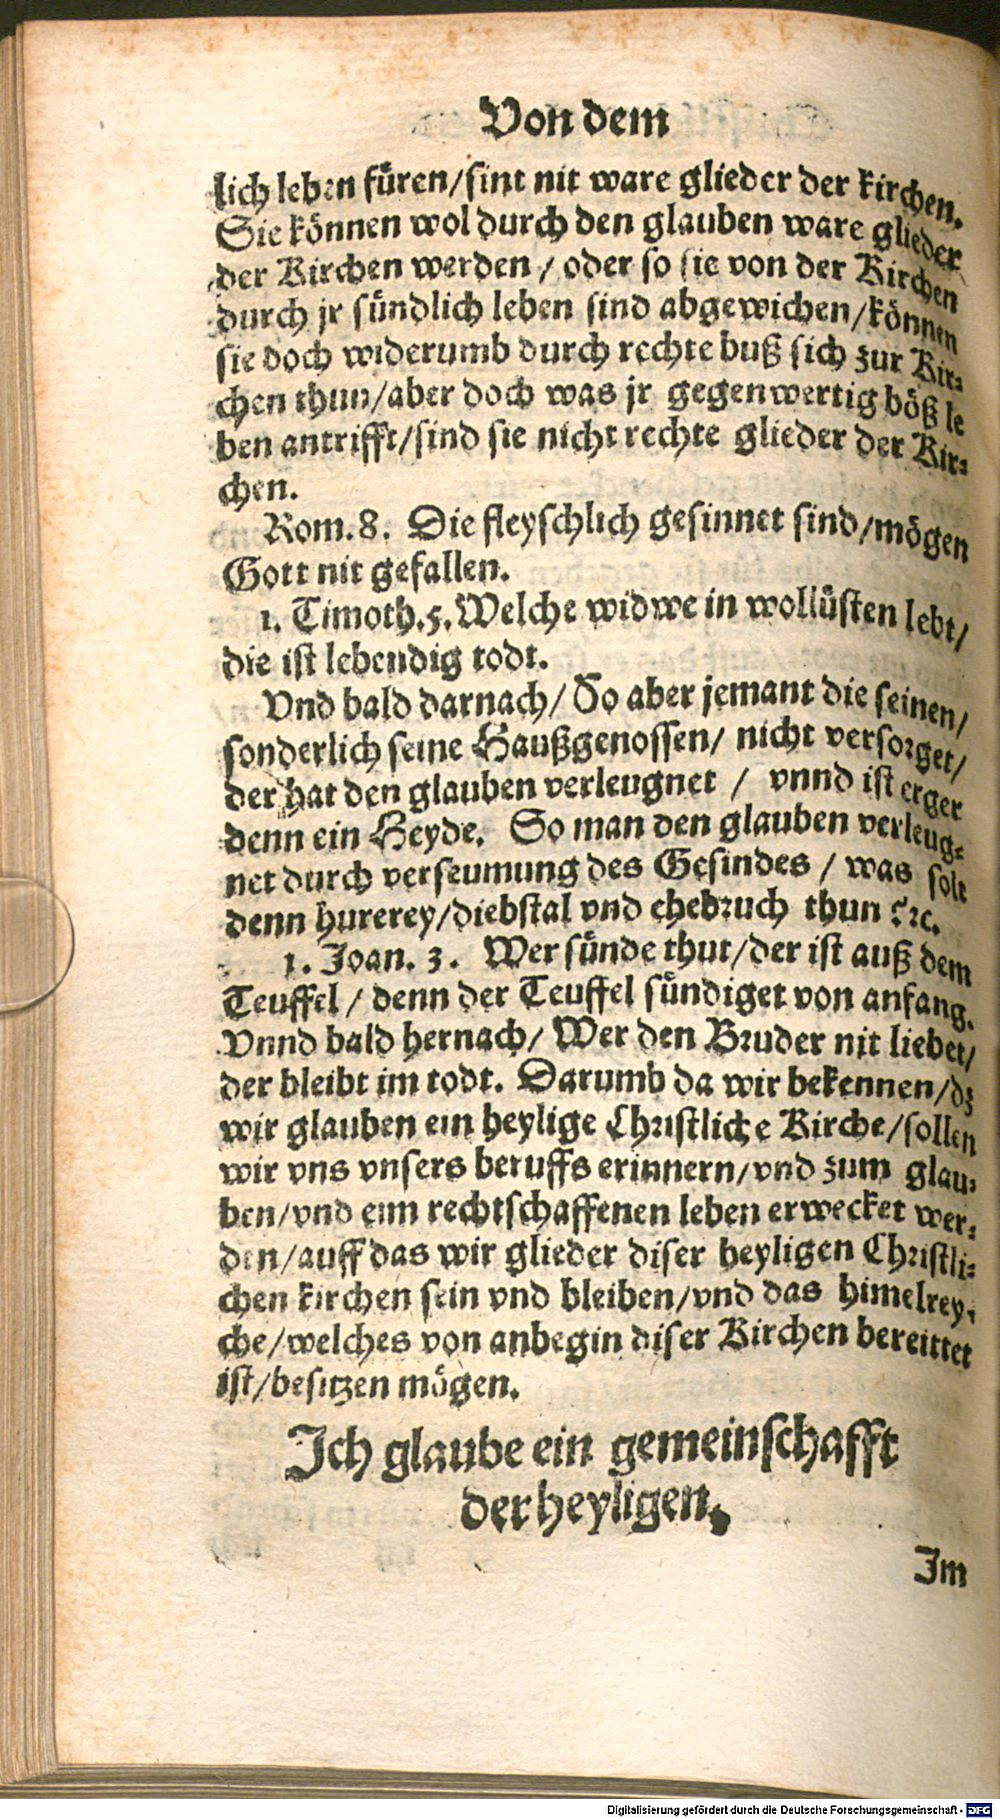 Von dem
lich leben füren/sint nit ware glieder der kirchen.
Sie können wol durch den glauben ware glieder
der Kirchen werden / oder so sie von der Kirchen
durch jr sündlich leben sind abgewichen/können
sie doch widerumb durch rechte buß sich zur Kir-
chen thun/aber doch was jr gegenwertig böß le
ben antrifft/sind sie nicht rechte glieder der Kir-
chen.
Rom. 8. Die fleyschlich gesinnet sind/mögen
Gott nit gefallen.
1. Timoth. 5. Welche widwe in wollüsten lebt/
die ist lebendig todt.
Vnd bald darnach/ So aber jemant die seinen/
sonderlich seine Haußgenossen/ nicht versorget/
der hat den glauben verleugnet / vnnd ist erger
denn ein Heyde. So man den glauben verleug-
net durch verseumung des Gesindes / was solt
denn hurerey/diebstal vnd ehebruch thun ꝛc.
1. Joan. 3. Wer sünde thut/der ist auß dem
Teuffel / denn der Teuffel sündiget von anfang.
Vnnd bald hernach/ Wer den Bruder nit liebet/
der bleibt im todt. Darumb da wir bekennen/dz
wir glauben ein heylige Christliche Kirche/sollen
wir vns vnsers beruffs erinnern/vnd zum glau-
ben/vnd einn rechtschaffenen leben erwecket wer-
den/auff das wir glieder diser heyligen Christli-
chen kirchen sein vnd bleiben/vnd das himelrey-
che/welches von anbegin diser Kirchen bereittet
ist/besitzen mögen.
Ich glaube ein gemeinschafft
der heyligen.
Im
Digitalisierung gefördert durch die Deutsche Forschungsgemeinschaft - DFG